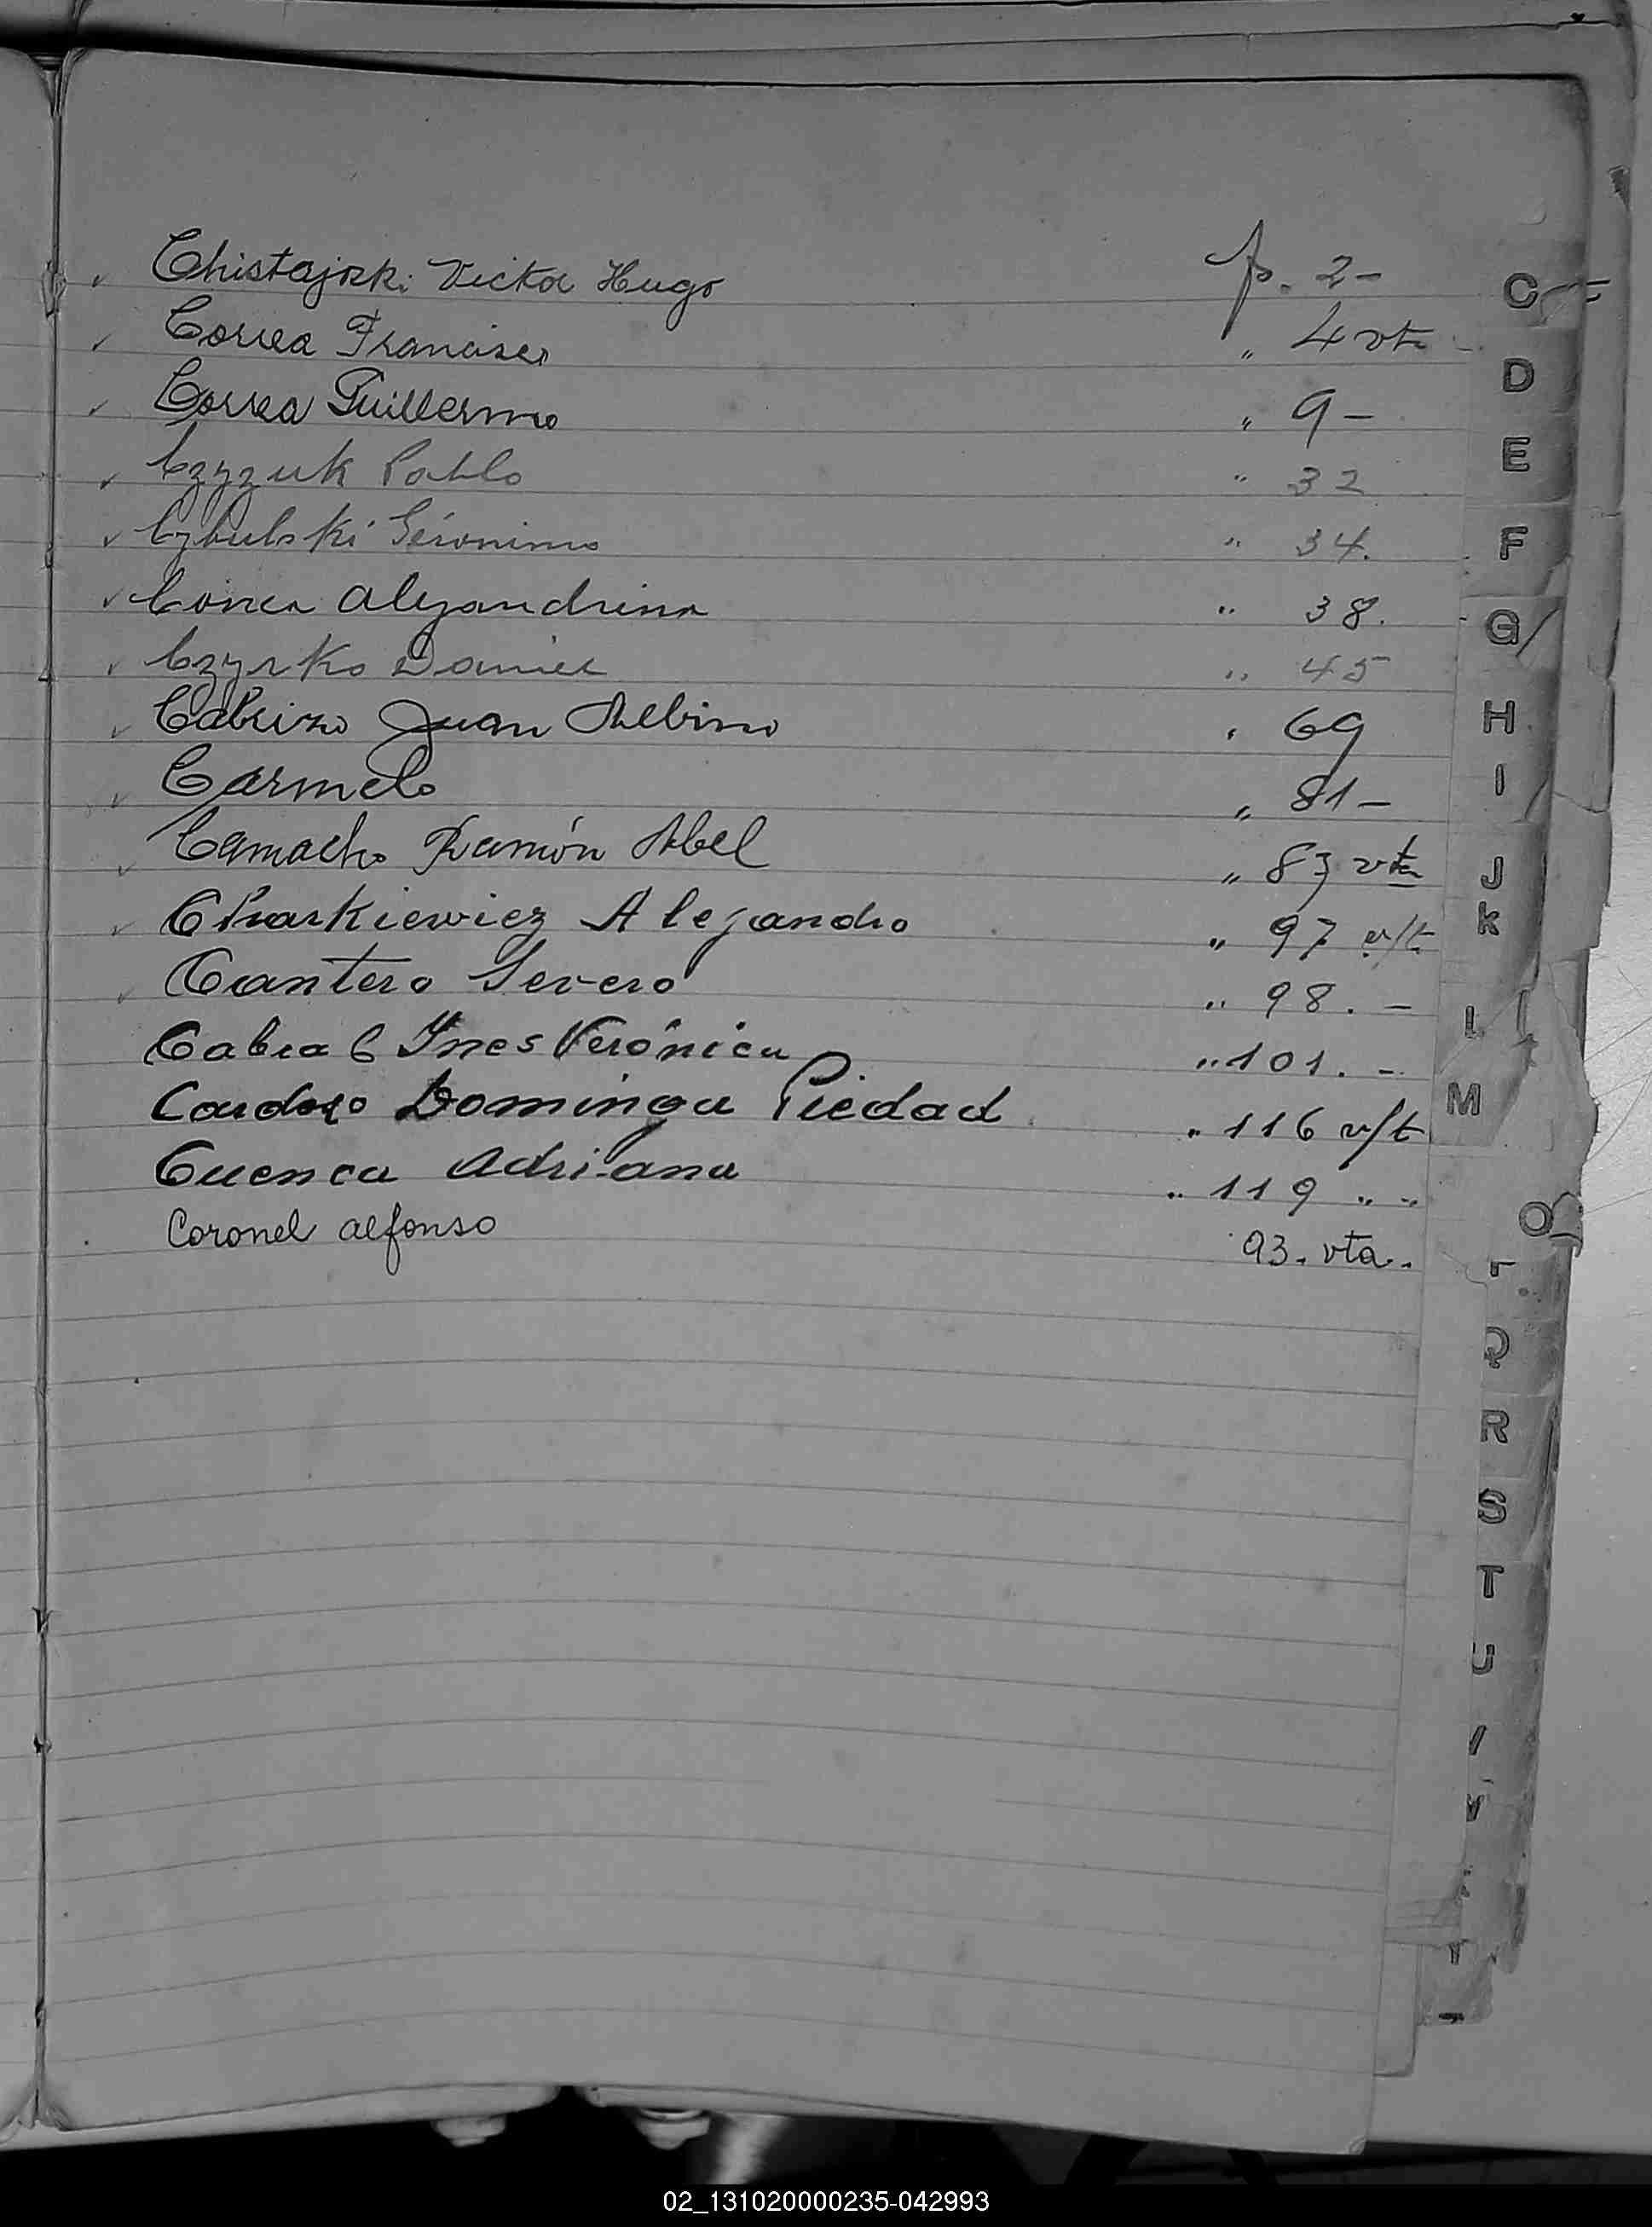 Chistajzki Victor Hugo fs. 2-
Correa Francisco " 4 vta
Correa Guillermo " 9-
Czyzuk Pablo " 32
Cybulski Gerónimo " 34.
Correa Alejandrina " 38.
Czyrko Daniel " 45
Cabrizo Juan Albino " 69
Carmelo " 81-
Camacho Ramón Abel " 83 vta
Alejandro " 97 v/t
Cantero Severo " 98. -
Cabral Ynes Verónica " 101. -
Cardozo Dominga Piedad " 116 v/t
Cuenca Adriana " 119 " "
Coronel alfonso 93. vta.
C
D
E
F
G
H
I
J
K
L
M
O
P
Q
R
S
T
U
V
02_131020000235-042993